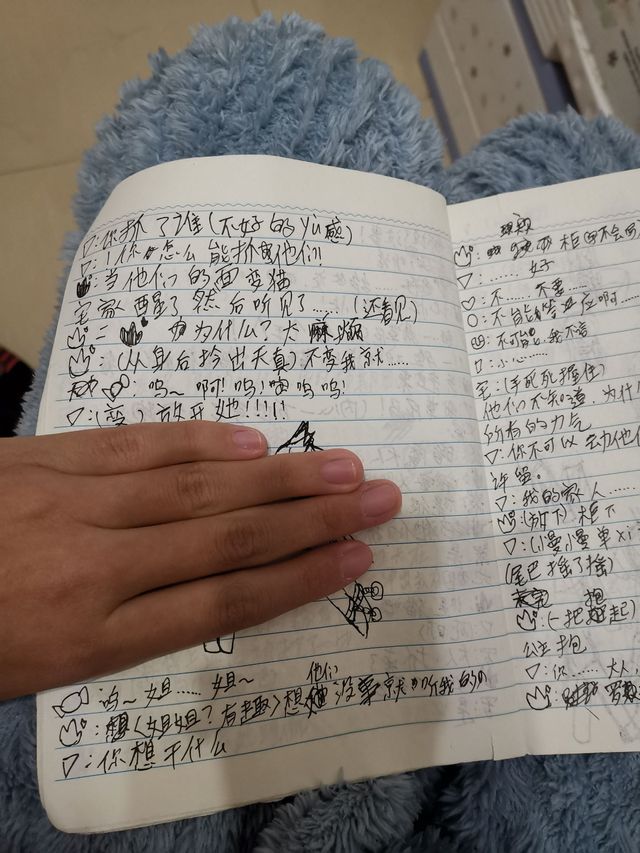 ▽:你抓了谁(不好的yù感)
▽!你怎么能抓他们!
:当他们的面变猫
宅家醒了然后听见了……(还看见)
为什么?太麻烦
:(从身后拎出天真)不变我就……
:呜~啊!呜!呜呜!
▽:(变)放开她!!!!
:呜~姐……姐~
:想<姐姐?有趣>想他们没事就听我的
▽:你想干什么
▽:……好
♡:不……不要……
○:不能答应啊……
:不可能,我不言
▽:小心……
宅:(手死死握住)
他们不知道,为什
所有的力气
▽:你不可以动他们
许。
▽:我的家人……
:(放下)柜下
▽:(慢慢单xi
(尾巴摇了摇)
:(一把抱起)
公主抱
▽:你……大人